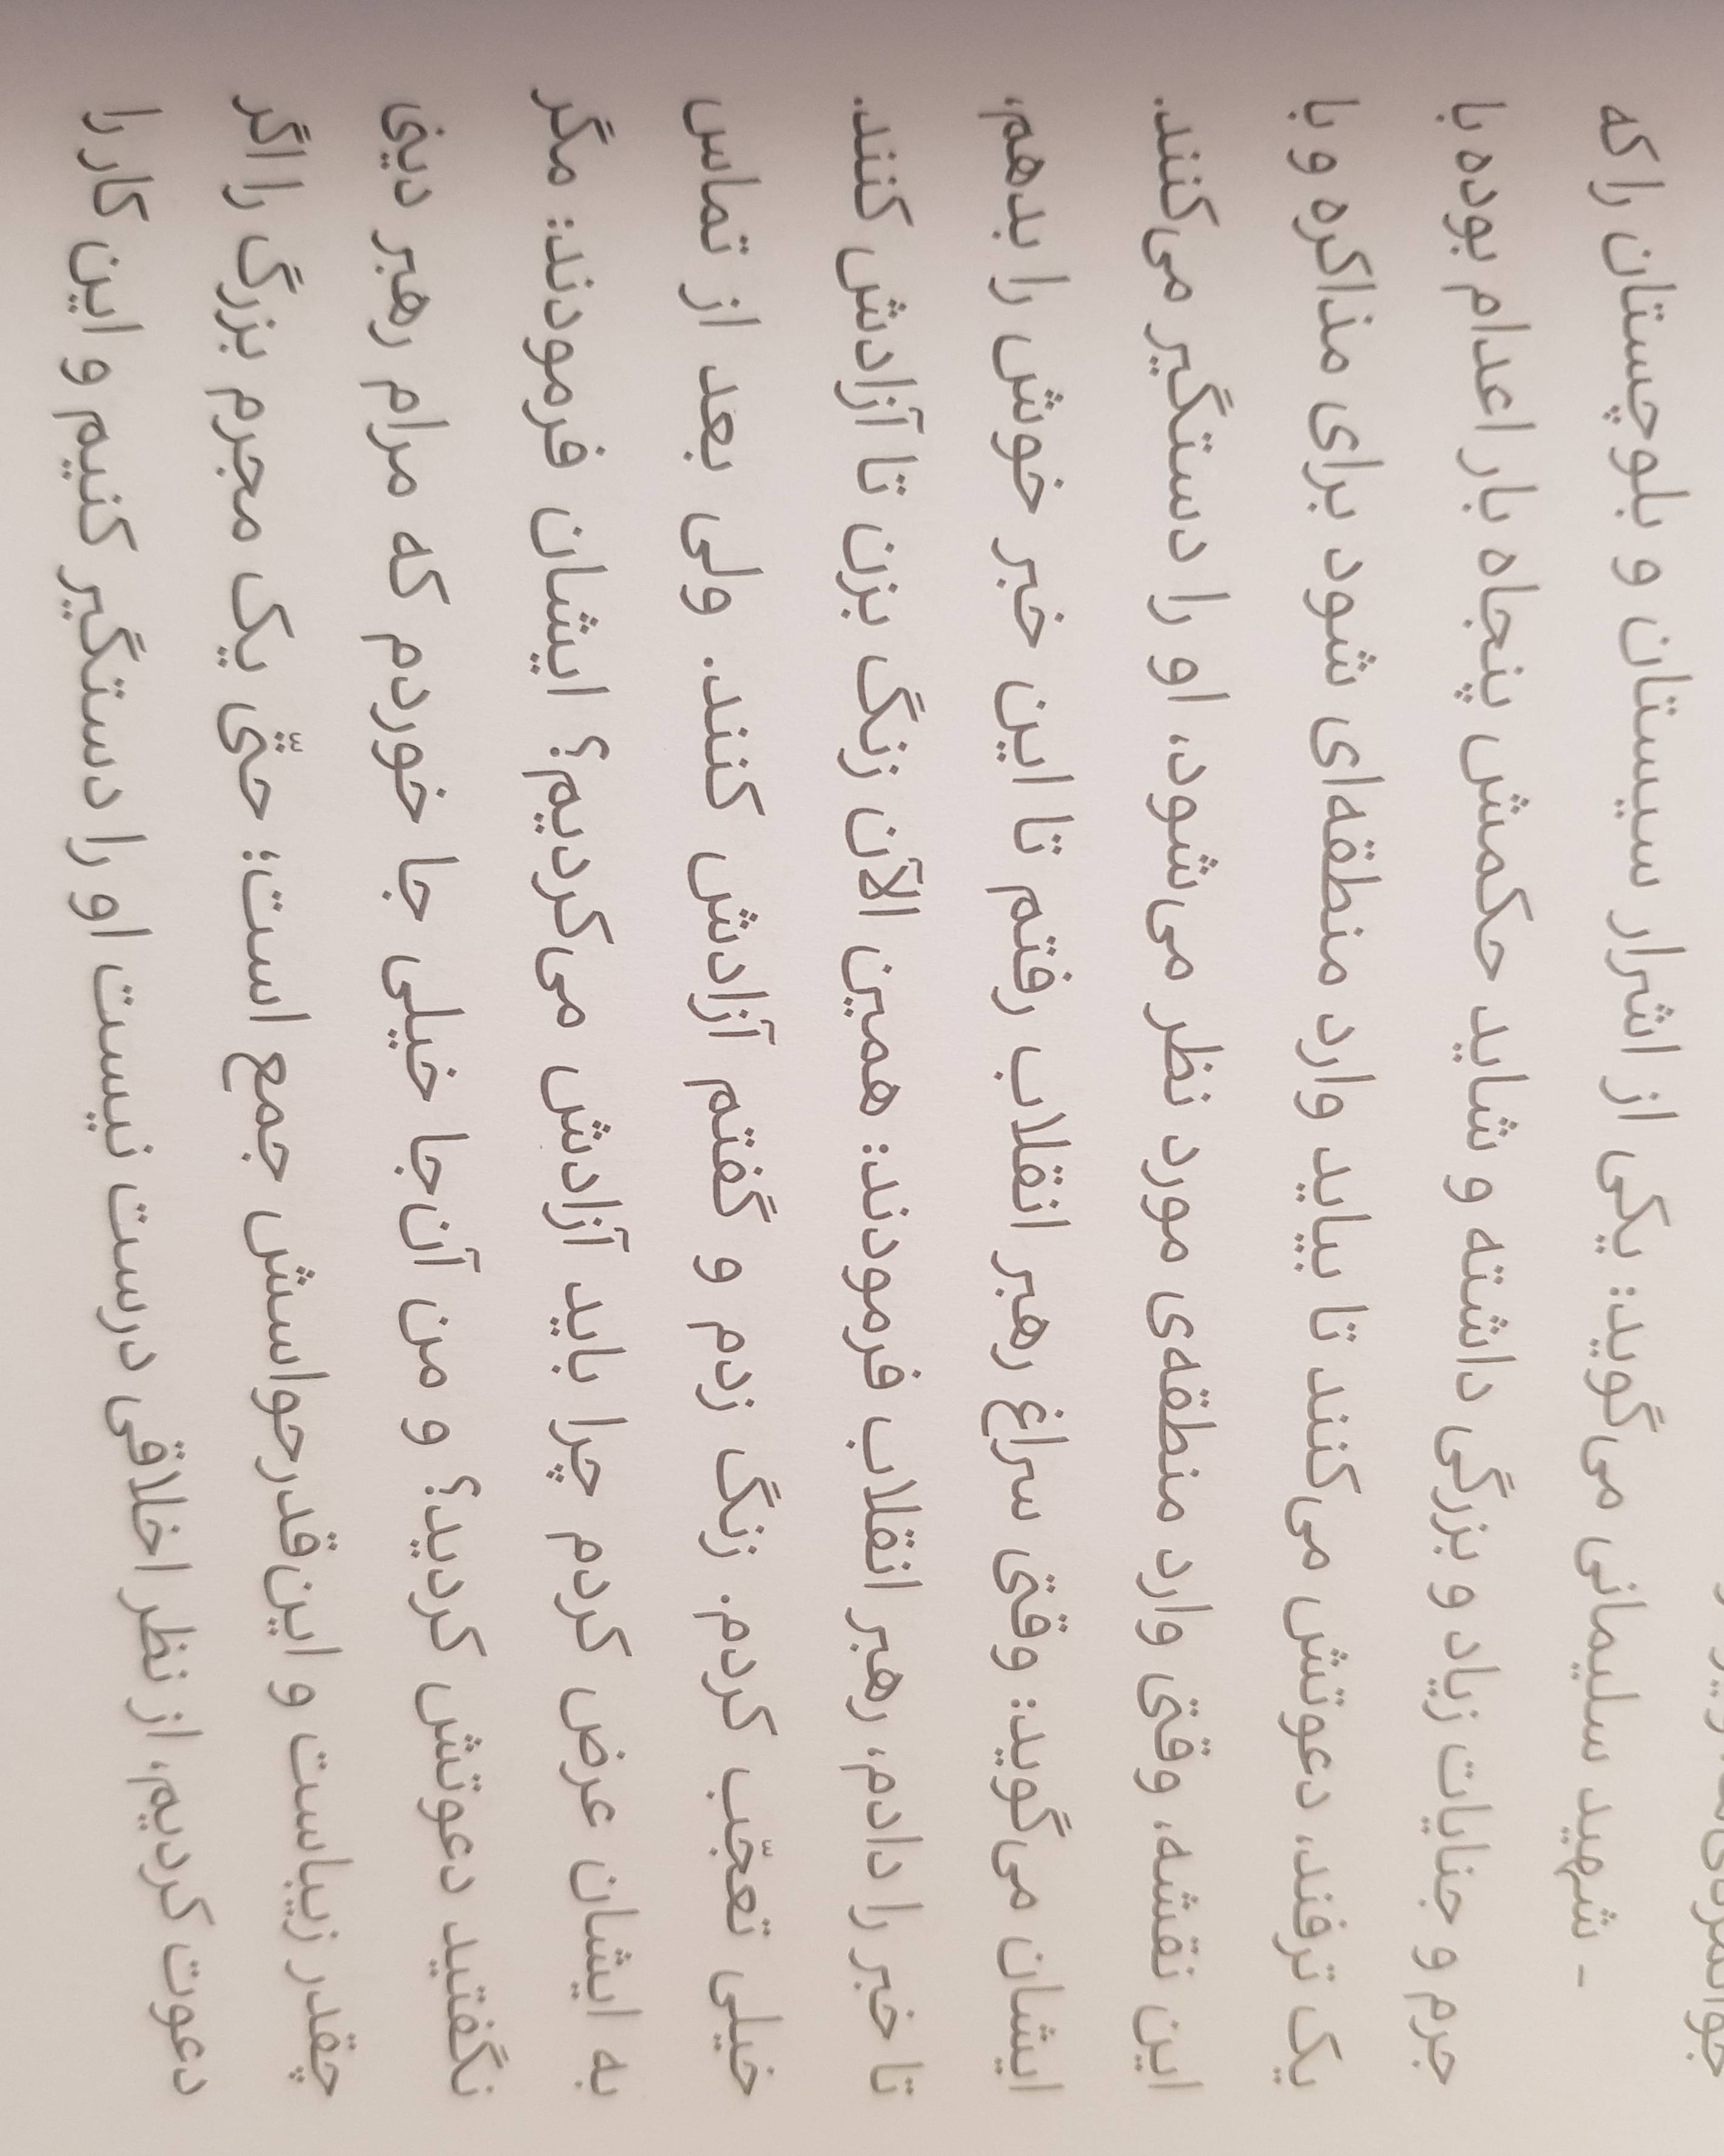 - شهید سلیمانی می‌گوید: یکی از اشرار سیستان و بلوچستان را که
جرم و جنایات زیاد و بزرگی داشته و شاید حکمش پنجاه بار اعدام بوده با
یک ترفند، دعوتش می‌کنند تا بیاید وارد منطقه‌ای شود برای مذاکره و با
این نقشه، وقتی وارد منطقه‌ی مورد نظر می‌شود، او را دستگیر می‌کنند.
ایشان می‌گوید: وقتی سراغ رهبر انقلاب رفتم تا این خبر خوش را بدهم،
تا خبر را دادم، رهبر انقلاب فرمودند: همین الآن زنگ بزن تا آزادش کنند.
خیلی تعجّب کردم. زنگ زدم و گفتم آزادش کنند. ولی بعد از تماس
به ایشان عرض کردم چرا باید آزادش می‌کردیم؟ ایشان فرمودند: مگر
نگفتید دعوتش کردید؟ و من آن‌جا خیلی جا خوردم که مرام رهبر دینی
چقدر زیباست و این‌قدر حواسش جمع است؛ حتّی یک مجرم بزرگ را اگر
دعوت کردیم، از نظر اخلاقی درست نیست او را دستگیر کنیم و این کار را